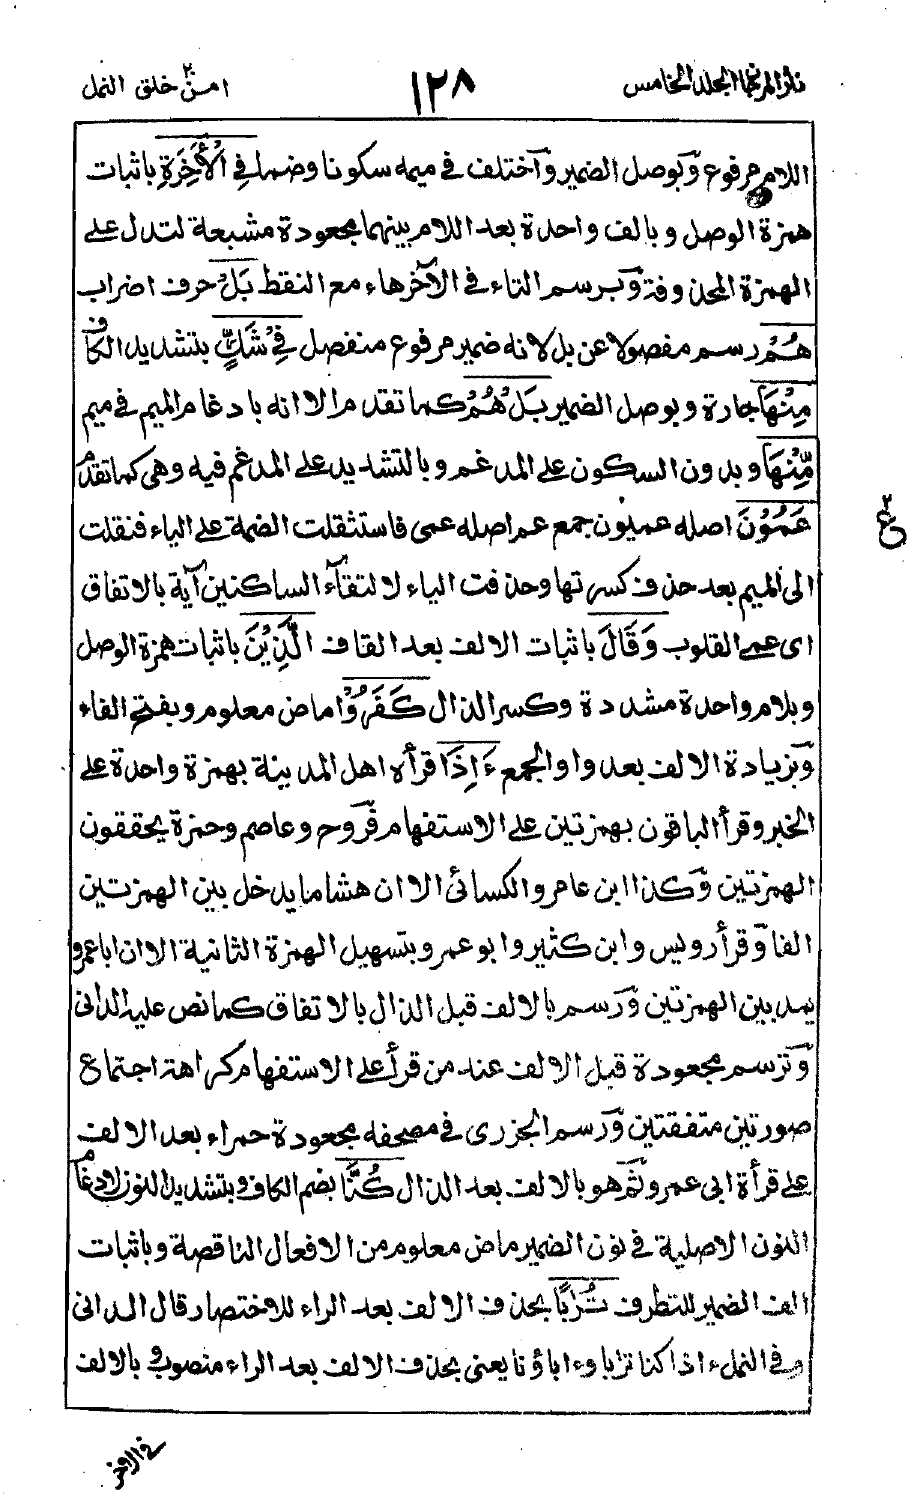 نثر المرجان المجلد الخامس
١٢٨
امن٢٠ خلق النمل
اللام مرفوع وَبوصل الضمير وَاختلف فى ميمه سكونا وضما فِي الْأٰخِرَةِ باثبات
همزة الوصل وبالف واحدة بعد اللام بينهما مجعودة مشبعة لتدل على
الهمزة المحذوفة وَبرسم التاء فى الآخر هاء مع النقط بَلْ حرف اضراب
هُمْ رسم مفصولا عن بل لانه ضمير مرفوع منفصل فِيْ شَكٍّ بتشديد الكاف
مِنْهَا جارة وبوصل الضمير بَلْ هُمْ كما تقدم الا انه بادغام الميم فى ميم
مِّنْهَا وبدون السكون على المدغم وبالتشديد على المدغم فيه وهى كما تقدم
عَمُوْنَ اصله عميون جمع عم اصله عمى فاستثقلت الضمة على الياء فنقلت
الى الميم بعد حذف كسرتها وحذفت الياء لالتقآء الساكنين آية بالاتفاق
اى عمى القلوب وَقَالَ باثبات الالف بعد القاف الَّذِيْنَ باثبات همزة الوصل
وبلام واحدة مشددة وكسر الذال كَفَرُوْا ماض معلوم وبفتح الفاء
وَبزيادة الالف بعد واو الجمع ءَاِذَا قرأه اهل المدينة بهمزة واحدة على
الخبر وقرأ الباقون بهمزتين على الاستفهام فروح وعاصم وحمزة يحققون
الهمزتين وَكذا ابن عامر والكسائى الا ان هشاما يدخل بين الهمزتين
الفا وَقرأ رويس وابن كثير وابو عمرو بتسهيل الهمزة الثانية الا ان ابا عمرو
يمد بين الهمزتين وَرسم بالالف قبل الذال بالاتفاق كما نص عليه الدانى
وَترسم مجعودة قبل الالف عند من قرأ على الاستفهام كراهة اجتماع
صورتين متفقتين وَرسم الجزرى فى مصحفه مجعودة حمراء بعد الالف
على قرأة ابى عمرو ثم هو بالالف بعد الذال كُنَّا بضم الكاف وبتشديد النون لادغام
النون الاصلية فى نون الضمير ماض معلوم من الافعال الناقصة وباثبات
الف الضمير للتطرف تُرٰبًا بحذف الالف بعد الراء للاختصار قال الدانى
وفى النمل ءاذا كنا ترابا وءاباؤنا يعنى بحذف الالف بعد الراء منصوب وبالالف
ع٢
فى الاخر